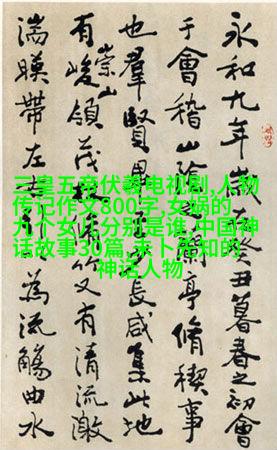 永和九年歲癸丑暮春之初會
于會稽山陰之蘭亭脩稧事
也羣賢畢長咸集此地
有崇山峻領茂竹又有清流激
湍暎帶左為流觴曲水
三皇五帝伏羲电视剧,人物
传记作文800字,女娲的
九个女儿分别是谁,中国神
话故事30篇,未卜先知的
神话人物